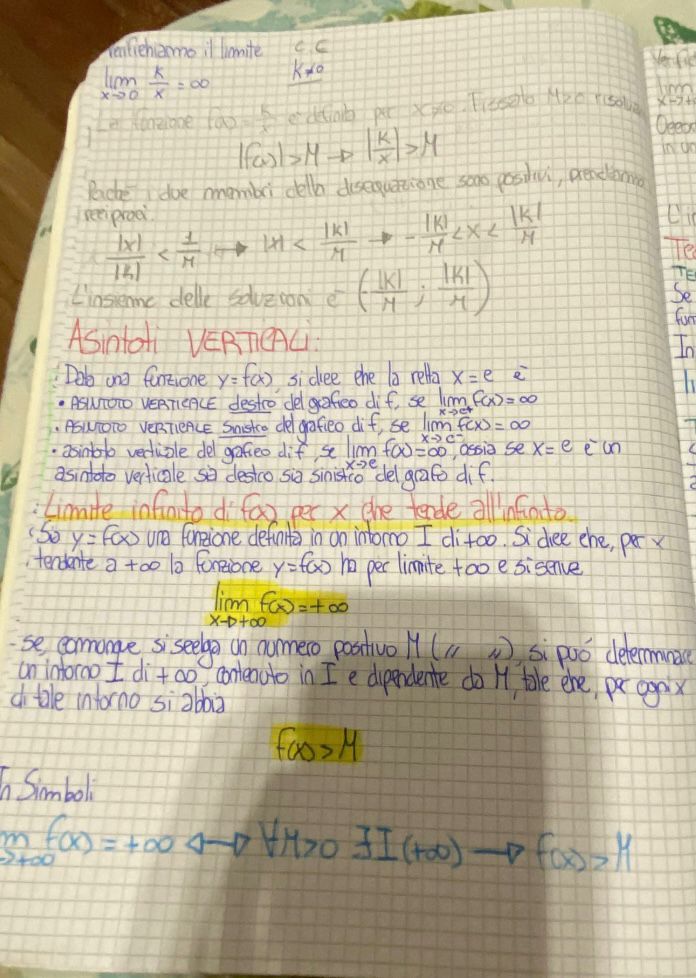 Verifichiamo il limite C.C
lim x→0 k/x = ∞ k≠0
La funzione f(x) = k/x è definita per x≠0. Fissato M>0 risolvia
|f(x)| > M → |k/x| > M
Poiché i due membri della disequazione sono positivi, prendiamo
i reciproci.
|x|/|k| < 1/M → |x| < |k|/M → -|k|/M < x < |k|/M
L'insieme delle soluzioni è (-|k|/M ; |k|/M)
Asintoti VERTICALI:
: Data una funzione y=f(x), si dice che la retta x=c è
• ASINTOTO VERTICALE destro del grafico di f, se lim x→c+ f(x)=∞
• ASINTOTO VERTICALE sinistro del grafico di f, se lim x→c- f(x)=∞
• asintoto verticale del grafico di f, se lim x→c f(x)=∞, ossia se x=c è un
asintoto verticale sia destro sia sinistro del grafo di f.
: Limite infinito di f(x) per x che tende all'infinito.
Sia y=f(x) una funzione definita in un intorno I di +∞. Si dice che, per x
tendente a +∞ la funzione y=f(x) ha per limite +∞ e si scrive
lim x→+∞ f(x)=+∞
- se, comunque si scelga un numero positivo M (" "), si può determinare
un intorno I di +∞, contenuto in I e dipendente da M, tale che, per ogni x
di tale intorno si abbia
f(x)>M
In Simboli
m →+∞ f(x)=+∞ ↔ ∀M>0 ∃I(+∞) → f(x)>M
Verific
lim x→+
in un
Te
TE
Se
fun
In
li